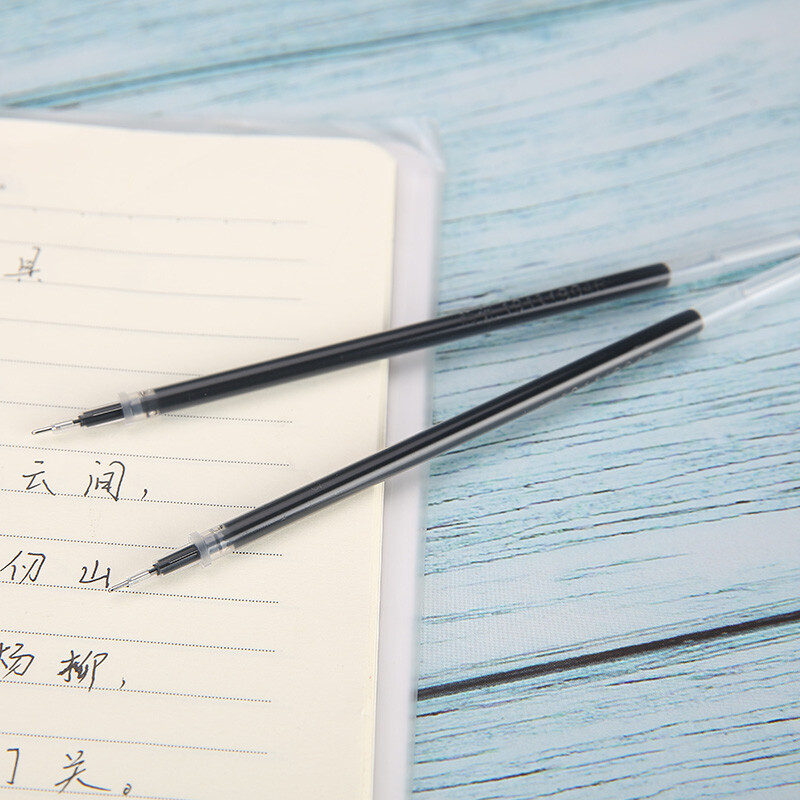 县
云间，
仞山
杨柳，
门关。